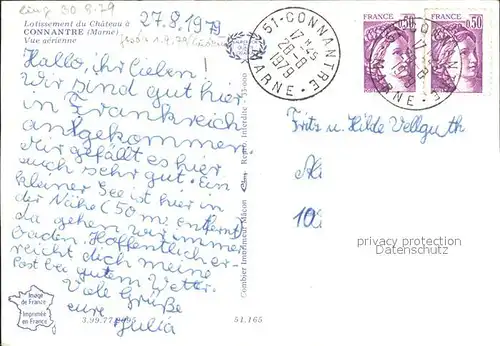 eing 30.8.79
Lotissement du Château à
CONNANTRE (Marne)
Vue aérienne
27.8.1979
Hallo, ihr lieben!
Wir sind gut hier
in Frankreich
angekommen.
Mir gefällt es hier
auch sehr gut. Ein
kleiner See ist hier in
der Nähe (50 m entfernt)
da gehen wir immer
baden. Hoffentlich er-
reicht dich meine
Post bei gutem Wetter.
Viele Grüße
eure Julia
Image
de France
Imprimée
en France
3.99.77.0895
51.165
Combier Imprimeur Mâcon
Repro. Interdite
51-CONNANTRE
17 H45
28-8
1979
MARNE
FRANCE 0,50
FRANCE 0,50
Fritz u. Hilde Vellguth
10
privacy protection
Datenschutz